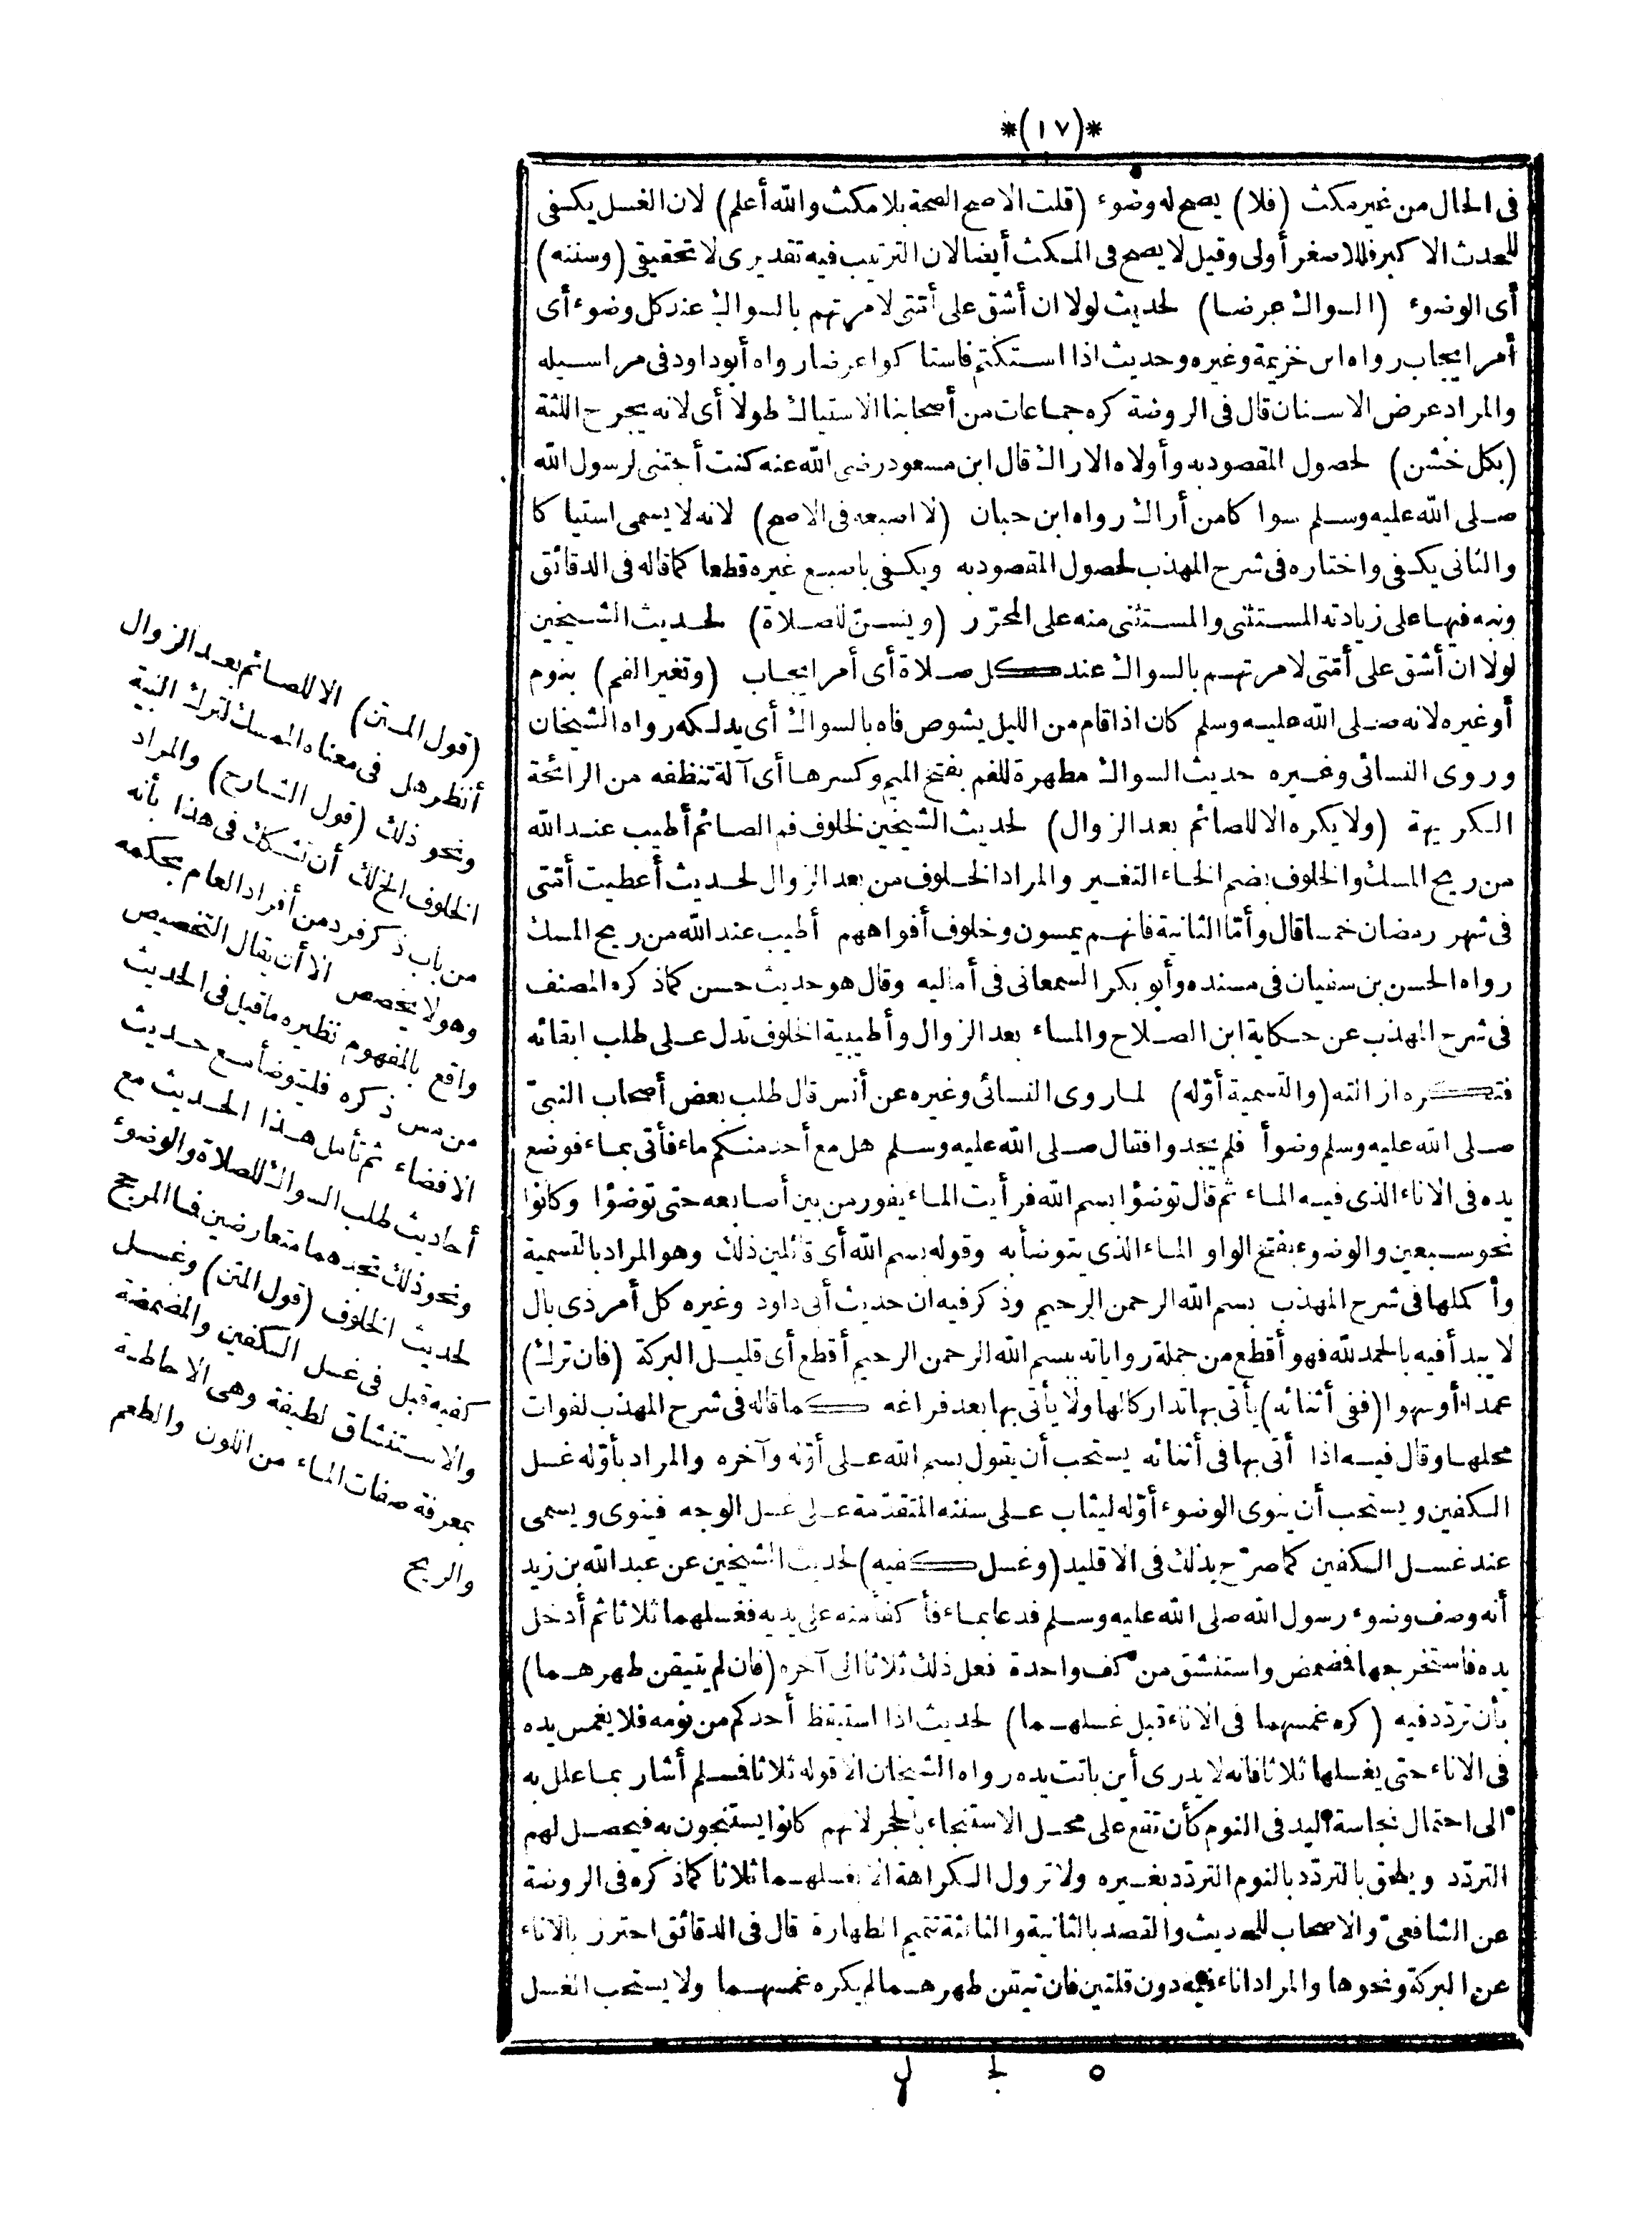 *(١٧)*
فى الحال من غير مكث (فلا) يصح له وضوء (قلت الاصح الصحة بلا مكث والله أعلم) لان الغسل يكفى
للحدث الاكبر فللاصغر أولى وقيل لا يصح فى المكث أيضا لان الترتيب فيه تقديرى لا تحقيقى (وسننه)
أى الوضوء (السواك عرضا) لحديث لولا ان أشق على أمتى لامرتهم بالسواك عند كل وضوء أى
أمر ايجاب رواه ابن خزيمة وغيره وحديث اذا استكتم فاستاكوا عرضا رواه أبو داود فى مراسيله
والمراد عرض الاسنان قال فى الروضة كره جماعات من أصحابنا الاستياك طولا أى لانه يجرح اللثة
(بكل خشن) لحصول المقصود به وأولاه الاراك قال ابن مسعود رضى الله عنه كنت أجتنى لرسول الله
صلى الله عليه وسلم سواكا من أراك رواه ابن حبان (لا اصبعه فى الاصح) لانه لا يسمى استياكا
والثانى يكفى واختاره فى شرح المهذب لحصول المقصود به ويكفى باصبع غيره قطعا كما قاله فى الدقائق
ونبه فيها على زيادته المستثنى والمستثنى منه على المحرّر (ويسنّ للصلاة) لحديث الشيخين
لولا ان أشق على أمّتى لامرتهم بالسواك عند كل صلاة أى أمر ايجاب (وتغير الفم) بنوم
أو غيره لانه صلى الله عليه وسلم كان اذا قام من الليل يشوص فاه بالسواك أى يدلكه رواه الشيخان
وروى النسائى وغيره حديث السواك مطهرة للفم بفتح الميم وكسرها أى آلة تنظفه من الرائحة
الكريهة (ولا يكره الا للصائم بعد الزوال) لحديث الشيخين لخلوف فم الصائم أطيب عند الله
من ريح المسك والخلوف بضم الخاء التغير والمراد الخلوف من بعد الزوال لحديث أعطيت أمّتى
فى شهر رمضان خمسا قال وأمّا الثانية فانهم يمسون وخلوف أفواههم أطيب عند الله من ريح المسك
رواه الحسن بن سفيان فى مسنده وأبو بكر السمعانى فى أماليه وقال هو حديث حسن كما ذكره المصنف
فى شرح المهذب عن حكاية ابن الصلاح والمساء بعد الزوال وأطيبية الخلوف تدل على طلب ابقائه
فتكره ازالته (والتسمية أوّله) لما روى النسائى وغيره عن أنس قال طلب بعض أصحاب النبىّ
صلى الله عليه وسلم وضوأ فلم يجدوا فقال صلى الله عليه وسلم هل مع أحد منكم ماء فأتى بماء فوضع
يده فى الاناء الذى فيه الماء ثم قال توضؤا بسم الله فرأيت الماء يفور من بين أصابعه حتى توضؤا وكانوا
نحو سبعين والوضوء بفتح الواو الماء الذى يتوضأ به وقوله بسم الله أى قائلين ذلك وهو المراد بالتسمية
وأكملها فى شرح المهذب بسم الله الرحمن الرحيم وذكر فيه ان حديث أبى داود وغيره كل أمر ذى بال
لا يبدأ فيه بالحمد لله فهو أقطع من جملة رواياته ببسم الله الرحمن الرحيم أقطع أى قليل البركة (فان ترك)
عمدا أو سهوا (ففى أثنائه) يأتى بها تداركا لها ولا يأتى بها بعد فراغه كما قاله فى شرح المهذب لفوات
محلها وقال فيه اذا أتى بها فى أثنائه يستحب أن يقول بسم الله على أوّله وآخره والمراد بأوّله غسل
الكفين ويستحب أن ينوى الوضوء أوّله ليثاب على سننه المتقدّمة على غسل الوجه فينوى ويسمى
عند غسل الكفين كما صرّح بذلك فى الاقليد (وغسل كفيه) لحديث الشيخين عن عبد الله بن زيد
أنه وصف وضوء رسول الله صلى الله عليه وسلم فدعا بماء فأكفأ منه على يديه فغسلهما ثلاثا ثم أدخل
يده فاستخرجها فمضمض واستنشق من كف واحدة فعل ذلك ثلاثا الى آخره (فان لم يتيقن طهرهما)
بأن تردّد فيه (كره غمسهما فى الاناء قبل غسلهما) لحديث اذا استيقظ أحدكم من نومه فلا يغمس يده
فى الاناء حتى يغسلها ثلاثا فانه لا يدرى أين باتت يده رواه الشيخان الا قوله ثلاثا فمسلم أشار بما علل به
الى احتمال نجاسة اليد فى النوم كأن تقع على محل الاستنجاء بالحجر لانهم كانوا يستنجون به فيحصل لهم
التردّد ويلحق بالتردّد بالنوم التردّد بغيره ولا تزول الكراهة الا بغسلهما ثلاثا كما ذكره فى الروضة
عن الشافعىّ والاصحاب للحديث والقصد بالثانية والثالثة تتميم الطهارة قال فى الدقائق احترز بالاناء
عن البركة ونحوها والمراد اناء فيه دون قلتين فان تيقن طهرهما لم يكره غمسهما ولا يستحب الغسل
(قول المتن) الا للصائم بعد الزوال
أنظر هل فى معناه الممسك لترك النية
ونحو ذلك (قول الشارح) والمراد
الخلوف الخ لك أن تشكك فى هذا بأنه
من باب ذكر فرد من أفراد العام بحكمه
وهو لا يخصص الا أن يقال التخصيص
واقع بالمفهوم نظيره ما قيل فى الحديث
من مس ذكره فليتوضأ مع حديث
الافضاء ثم تأمل هذا الحديث مع
أحاديث طلب السواك للصلاة والوضوء
ونحو ذلك تجدهما متعارضين فما المرجح
لحديث الخلوف (قول المتن) وغسل
كفيه قيل فى غسل الكفين والمضمضة
والاستنشاق لطيفة وهى الاحاطة
بمعرفة صفات الماء من اللون والطعم
والريح
٥ لج ل